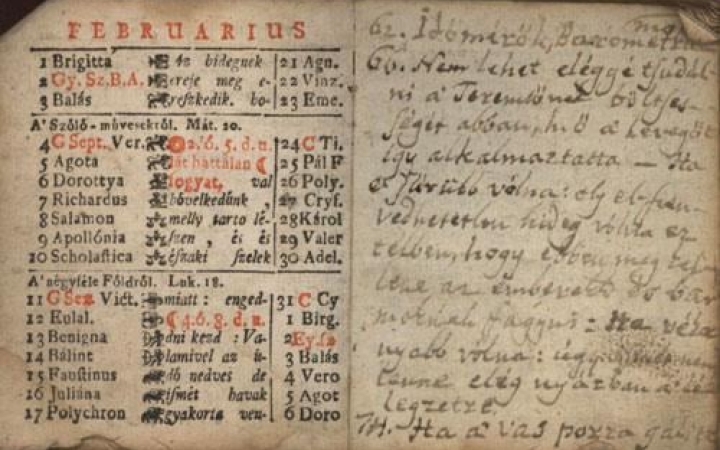 FEBRUARIUS
1 Brigitta Az hidegnek 21 Agn.
2 Gy. Sz. B. A. ereje meg e- 22 Vinz.
3 Balás reszkedik. bo- 23 Eme.
A' Szőlő-mivesekről. Mát. 20.
4 G Sept. Ver. 2. ó. 5. d. u. 24 C Ti.
5 Agota át hattálan 25 Pál F
6 Dorottya fogyat, val 26 Poly.
7 Richardus bövelkedünk, 27 Cryſ.
8 Salamon melly tarto lé- 28 Károl
9 Apollónia ſzen, és és 29 Valer
10 Scholaſtica éſzaki ſzelek 30 Adel.
A' négyféle Földről. Luk. 18.
11 G Sex. Vict. miatt: enged- 31 C Cy
12 Eulal. 4. ó. 8. d. u. 1 Birg.
13 Benigna dni kezd: Va- 2
14 Bálint lamivel az ü- 3 Balás
15 Fauſtinus dö nedves de 4 Vero
16 Juliána iſmét havak 5 Agot
17 Polychron gyakorta ven- 6 Doro
62. Időmérők,
66. Nem lehet eléggé tsudál-
ni a' Teremtőnek böltses-
ségét abban, h. ő a' levegőt
így alkalmaztatta — Ha
vólna: oly el-szen-
vedhetetlen hideg volna
télben, hogy
lene az emberek
Ha
nyabb vólna:
lenne elég nyárban a' lé-
legzetre.
74. Ha a' vas